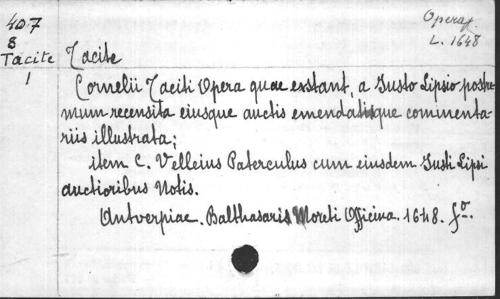 407
8
Tacite
1
Opera
L. 1648
Tacite
Cornelii Taciti Opera quae exstant, a Justo Lipsio postre-
mum recensita eiusque auctis emendatisque commenta-
riis illustrata;
item C. Velleius Paterculus cum eiusdem Justi Lipsi
auctioribus Notis.
Antverpiae. Balthasaris Moreti Officina. 1648. fo.